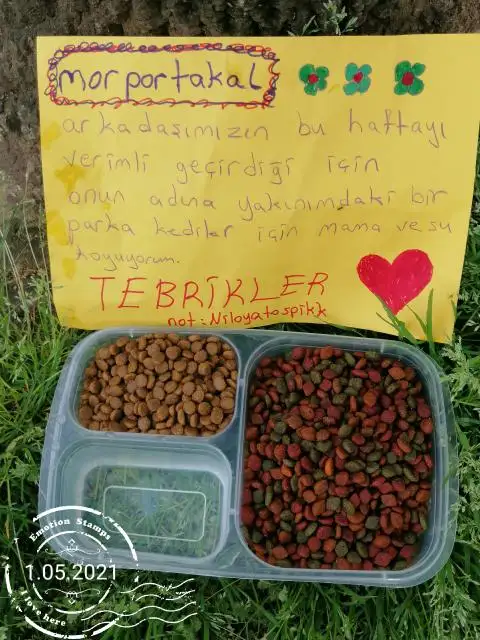 mor portakal
arkadaşımızın bu haftayı
verimli geçirdiği için
onun adına yakınımdaki bir
parka kediler için mama ve su
koyuyorum.
TEBRİKLER
not: Niloyatospikk
Emotion Stamps
1.05.2021
I love here